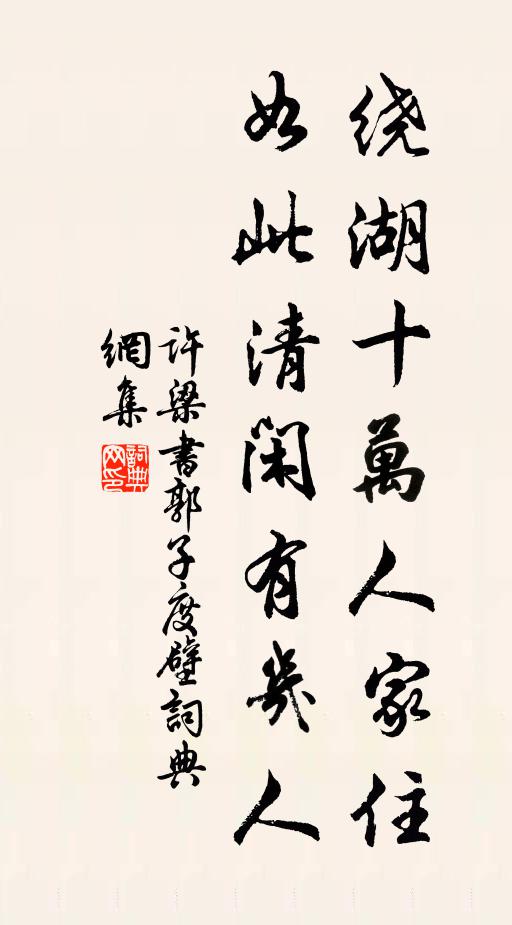 绕湖十萬人家住
如此清閑有幾人
許梁書郭子度壁詞典
網集
詞典
网印